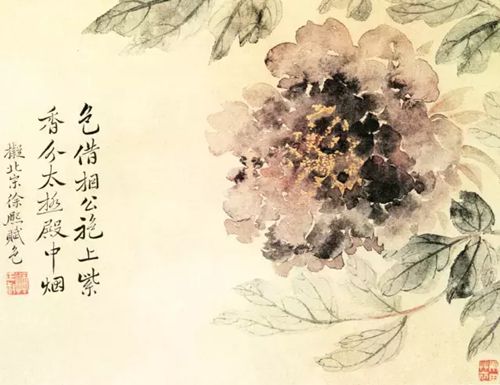 色借相公袍上紫
香分太极殿中烟
拟北宗徐熙赋色